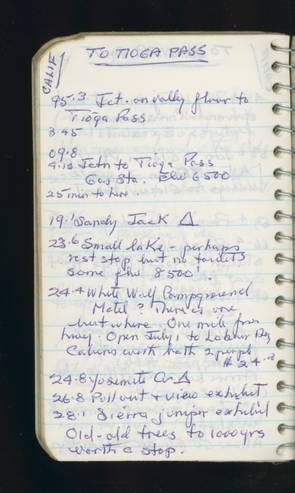 CALIF
TO TIOGA PASS
95.3 Jct. on vally floor to
Tioga Pass
3 45
09.8
4:10 Jctn to Tioga Pass
Gas Sta. Elev 6500
25 min to here.
19.1 Sandy Jack △
23.6 Small lake - perhaps
rest stop but no toilets
some pine 8500'.
24.4 White Wolf Campground
Motel? There is one
but where. One mile from
hiway. Open July 1 to Labor Day
Cabins with bath 2 people
$24.00
24.8 Yosemite Cr. △
26.8 Pull out + view exhibit
28.1 Sierra juniper exhibit
Old-old trees to 1000 yrs
worth a stop.